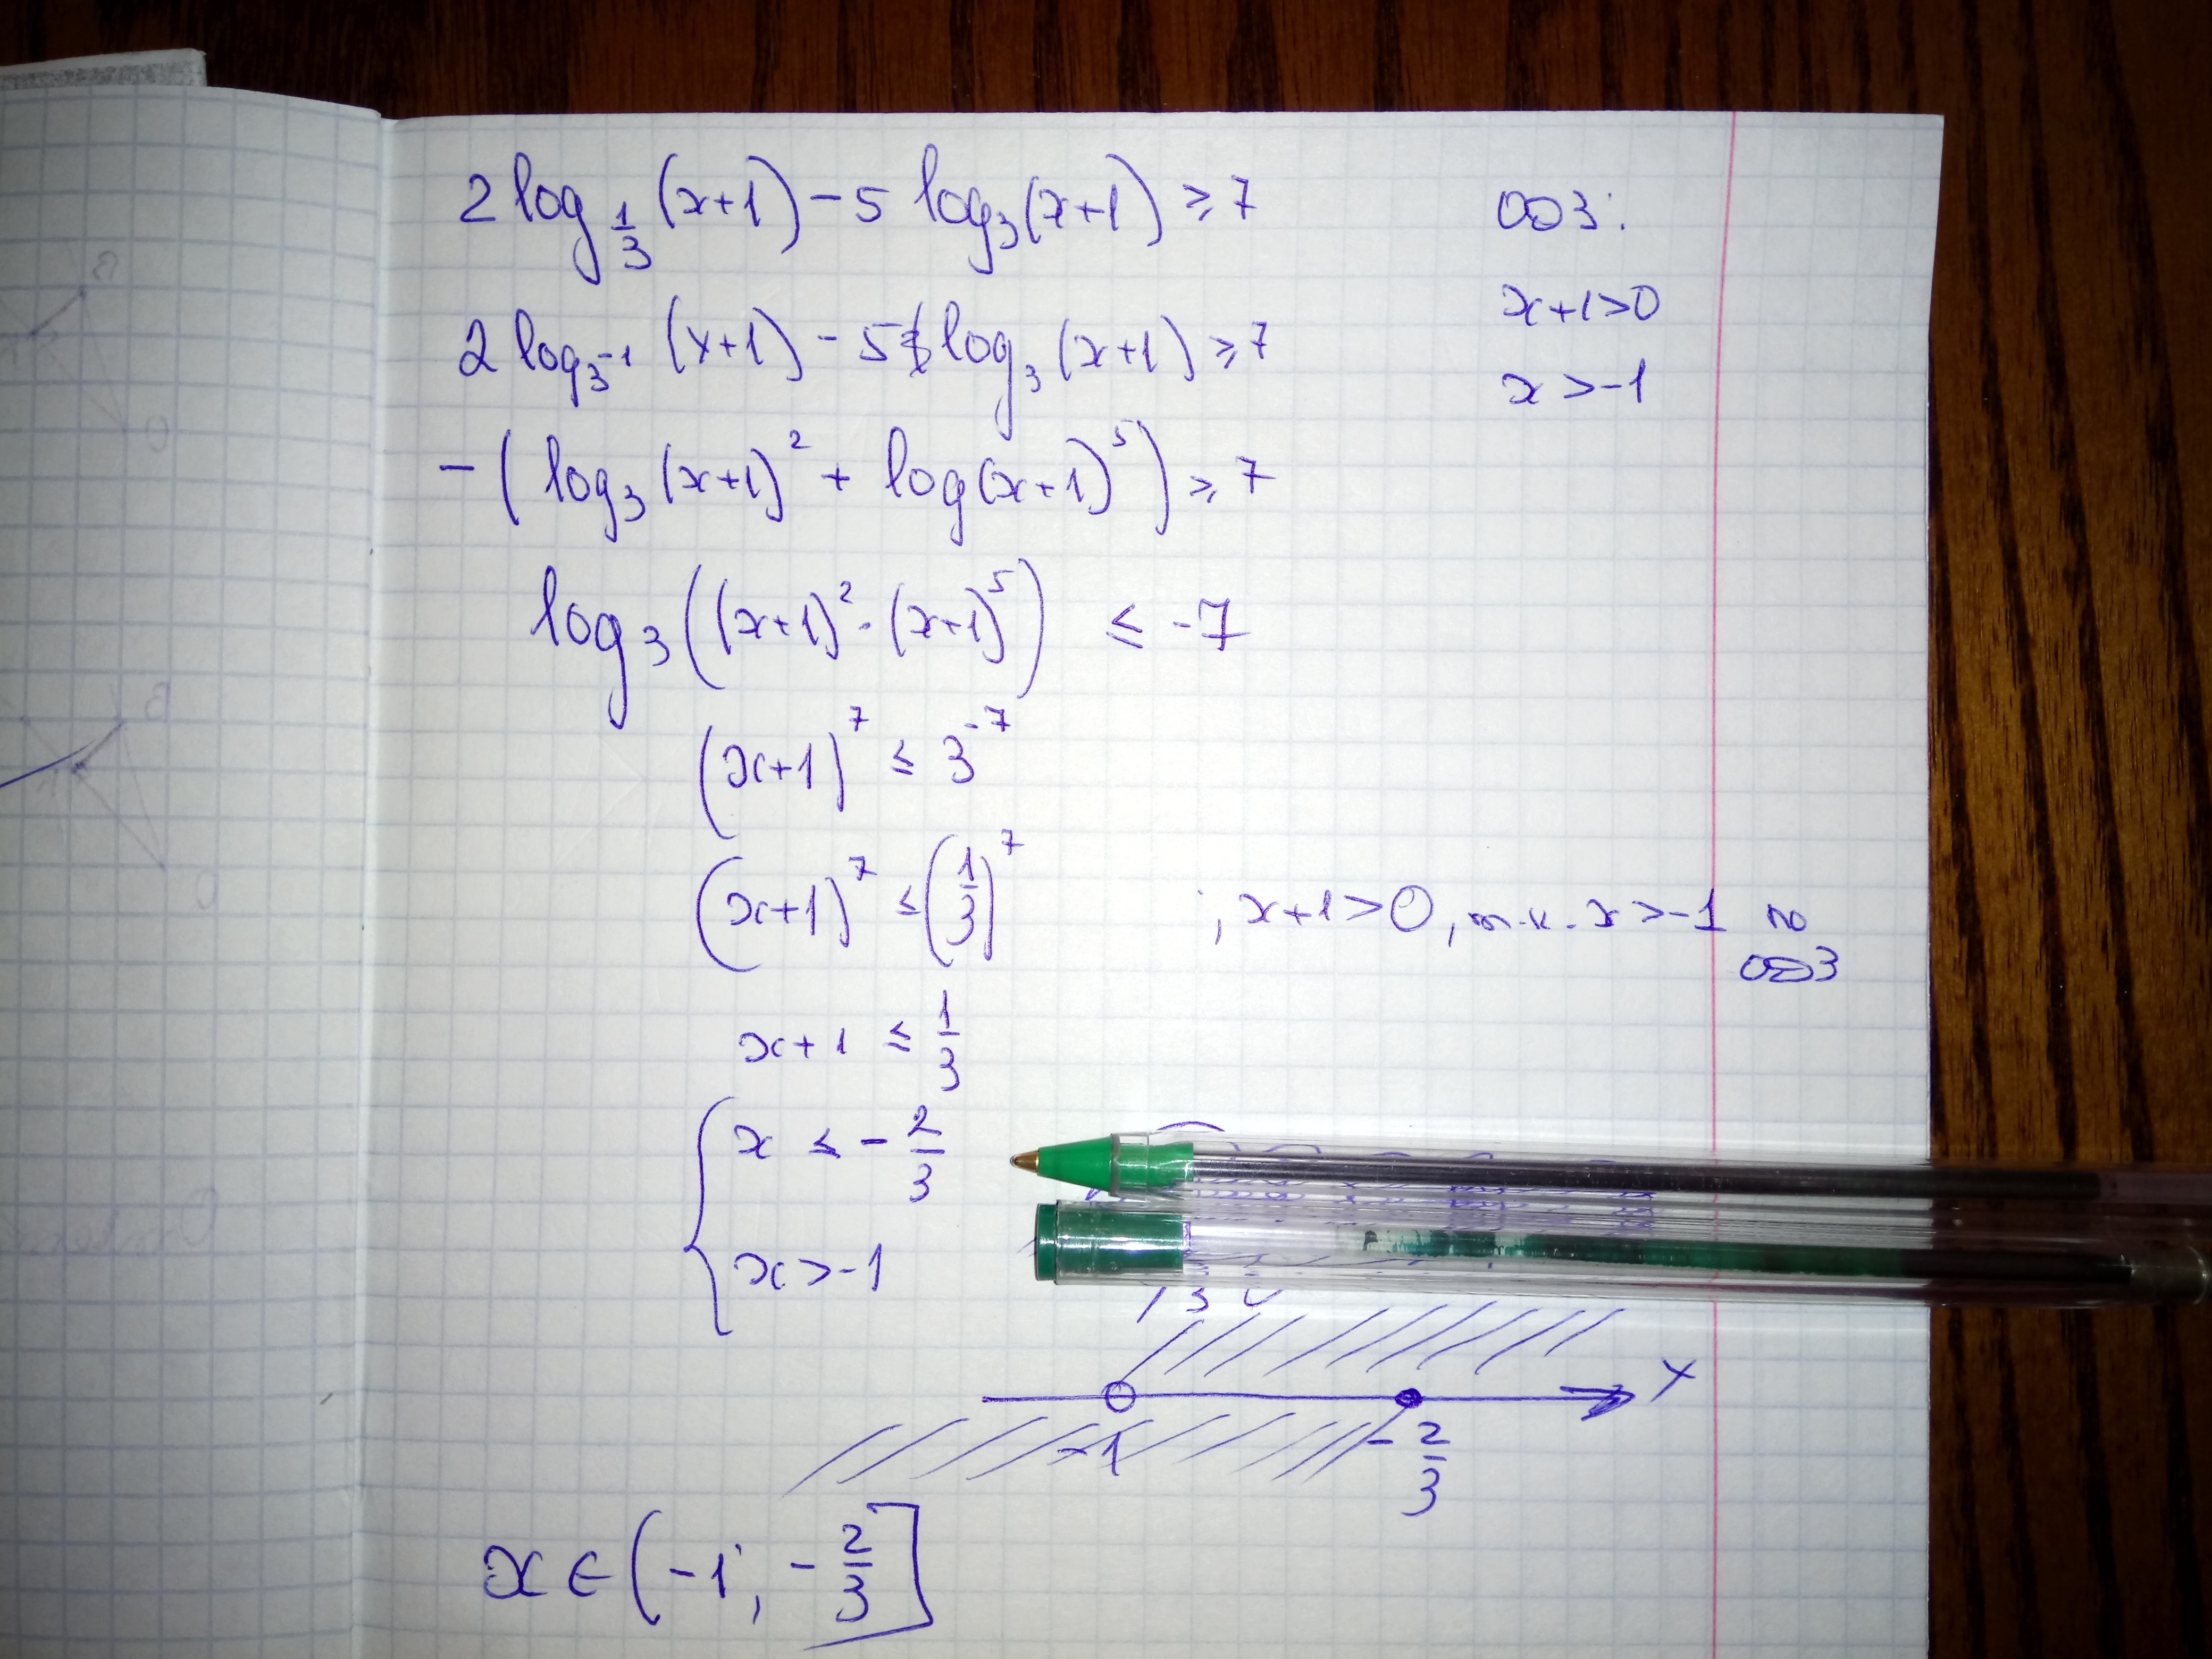 2 log_{1/3} (x+1) - 5 log_3 (x+1) ≥ 7
ОДЗ:
x+1>0
x > -1
2 log_{3^{-1}} (x+1) - 5 log_3 (x+1) ≥ 7
-(log_3 (x+1)^2 + log (x+1)^5) ≥ 7
log_3 ((x+1)^2 · (x+1)^5) ≤ -7
(x+1)^7 ≤ 3^{-7}
(x+1)^7 ≤ (1/3)^7 ; x+1>0, т.к. x>-1 по
ОДЗ
x+1 ≤ 1/3
{ x ≤ -2/3
x > -1
x
-1
-2/3
x ∈ (-1; -2/3]